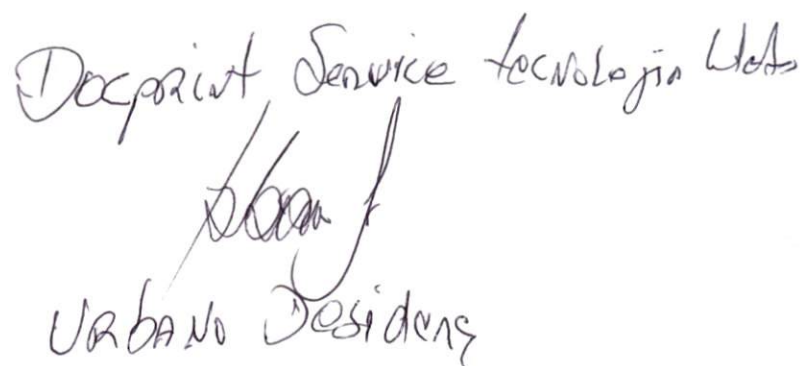 Docprint Service tecnologia Ltda
Urbano Desiderá